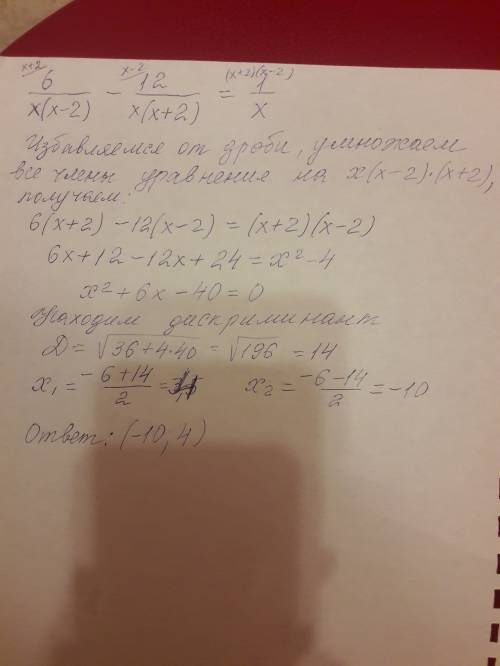 x+2 x-2 (x+2)(x-2)
6/x(x-2) - 12/x(x+2) = 1/x
Избавляемся от дроби, умножаем
все члены уравнения на x(x-2)·(x+2),
получаем:
6(x+2) -12(x-2) = (x+2)(x-2)
6x+12-12x+24 = x²-4
x²+6x-40=0
Находим дискриминант
D = √36+4·40 = √196 = 14
x₁ = -6+14/2 = x₂ = -6-14/2 = -10
Ответ: (-10; 4)